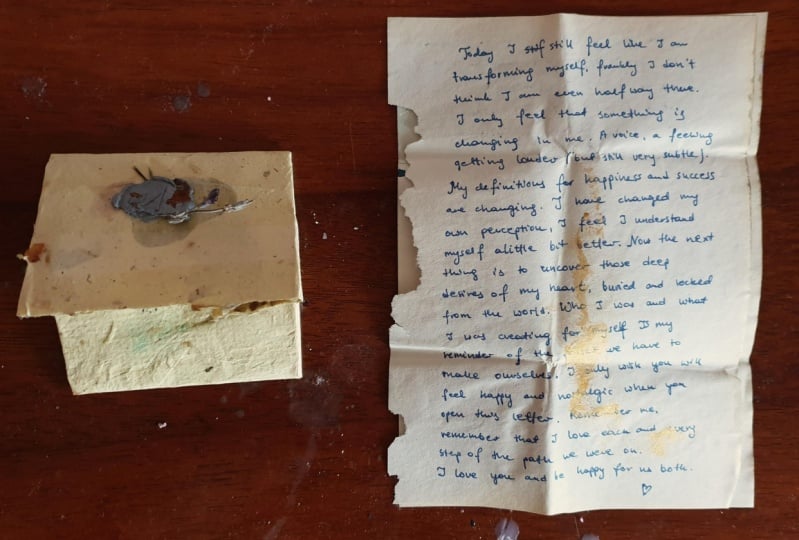 Today I still feel like I am
transforming myself, frankly I don't
think I am even halfway there.
I only feel that something is
changing in me. A voice, a feeling
getting louder (but still very subtle).
My definitions for happiness and success
are changing. I have changed my
own perception, I feel I understand
myself alittle bit better. Now the next
thing is to uncover those deep
desires of my heart, buried and locked
from the world. Who I was and what
I was creating for myself is my
reminder of the we have to
make ourselves. I only wish you will
feel happy and nostalgic when you
open this letter. Remember me,
remember that I love each and every
step of the path we were on.
I love you and be happy for us both.